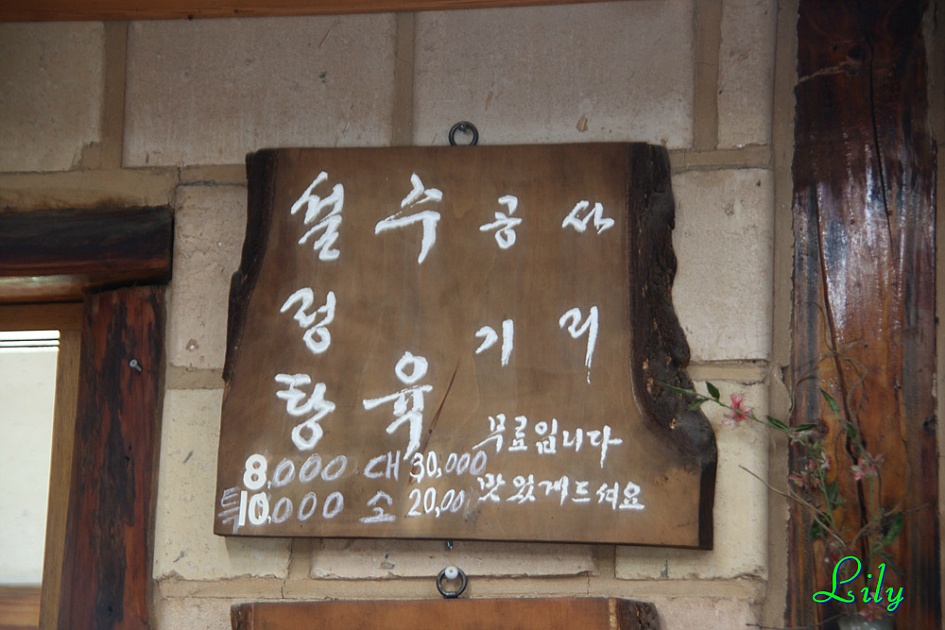 설렁탕
8,000
특 10,000
수육
대 30,000
소 20,00
공기
사리
무료입니다
맛있게드셔요
Lily